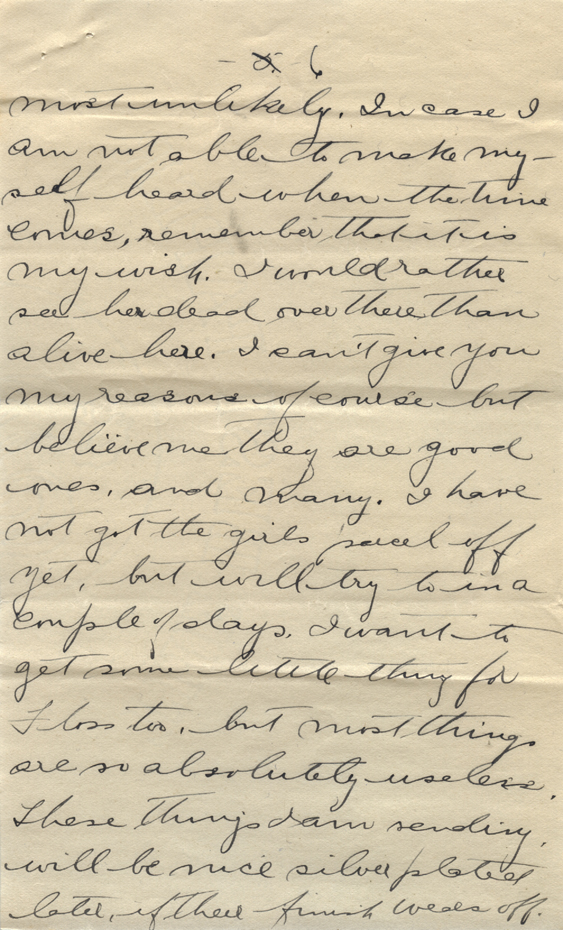 - 5 - 6
most unlikely. In case I
am not able to make my-
self heard when the time
comes, remember that it is
my wish. I would rather
see her dead over there than
alive here. I can't give you
my reasons of course but
believe me they are good
ones, and many. I have
not got the girls' off
yet, but will try to in a
couple of days. I want to
get some little thing for
Floss too, but most things
are so absolutely useless.
These things I am sending,
will be nice silver plated
later, if their finish wears off.